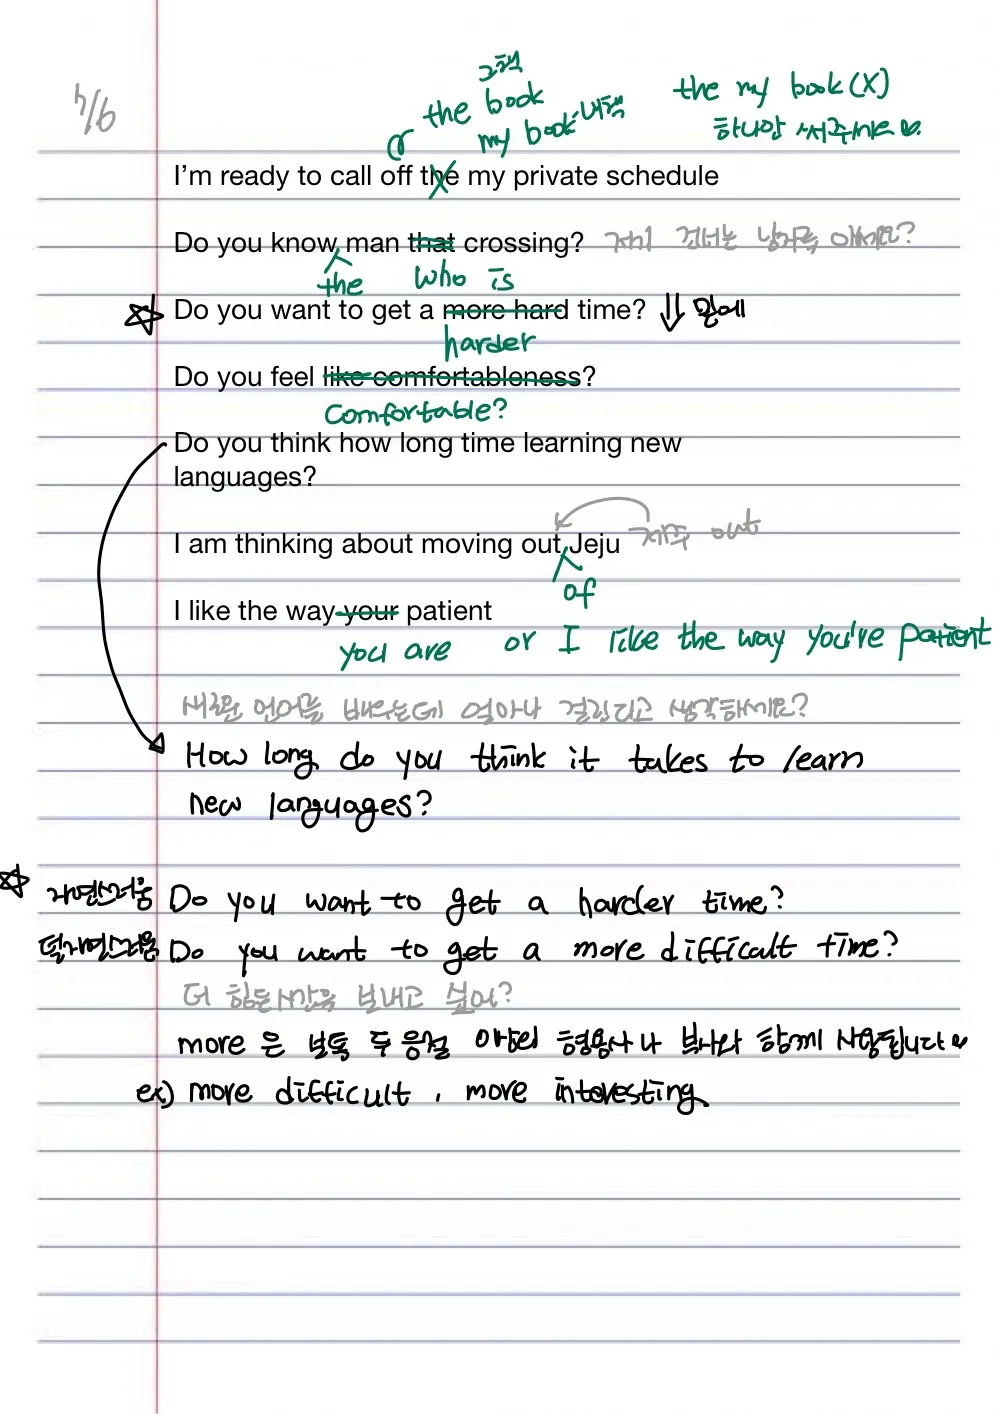 그책
the book
the my book (X)
7/6
my book-내책
하나만 써주세요
or
I'm ready to call off the my private schedule
Do you know man that crossing? 저기 건너는 남자를 아세요?
the who is
Do you want to get a more hard time? 밑에
harder
Do you feel like comfortableness?
Comfortable?
Do you think how long time learning new
languages?
I am thinking about moving out Jeju 제주 out
of
I like the way your patient
you are or I like the way you're patient
새로운 언어를 배우는데 얼마나 걸린다고 생각하세요?
How long do you think it takes to learn
new languages?
자연스러움 Do you want to get a harder time?
덜자연스러움 Do you want to get a more difficult time?
더 힘든시간을 보내고 싶어?
more 은 보통 두 음절 이상의 형용사나 부사와 함께 사용됩니다
ex) more difficult, more interesting